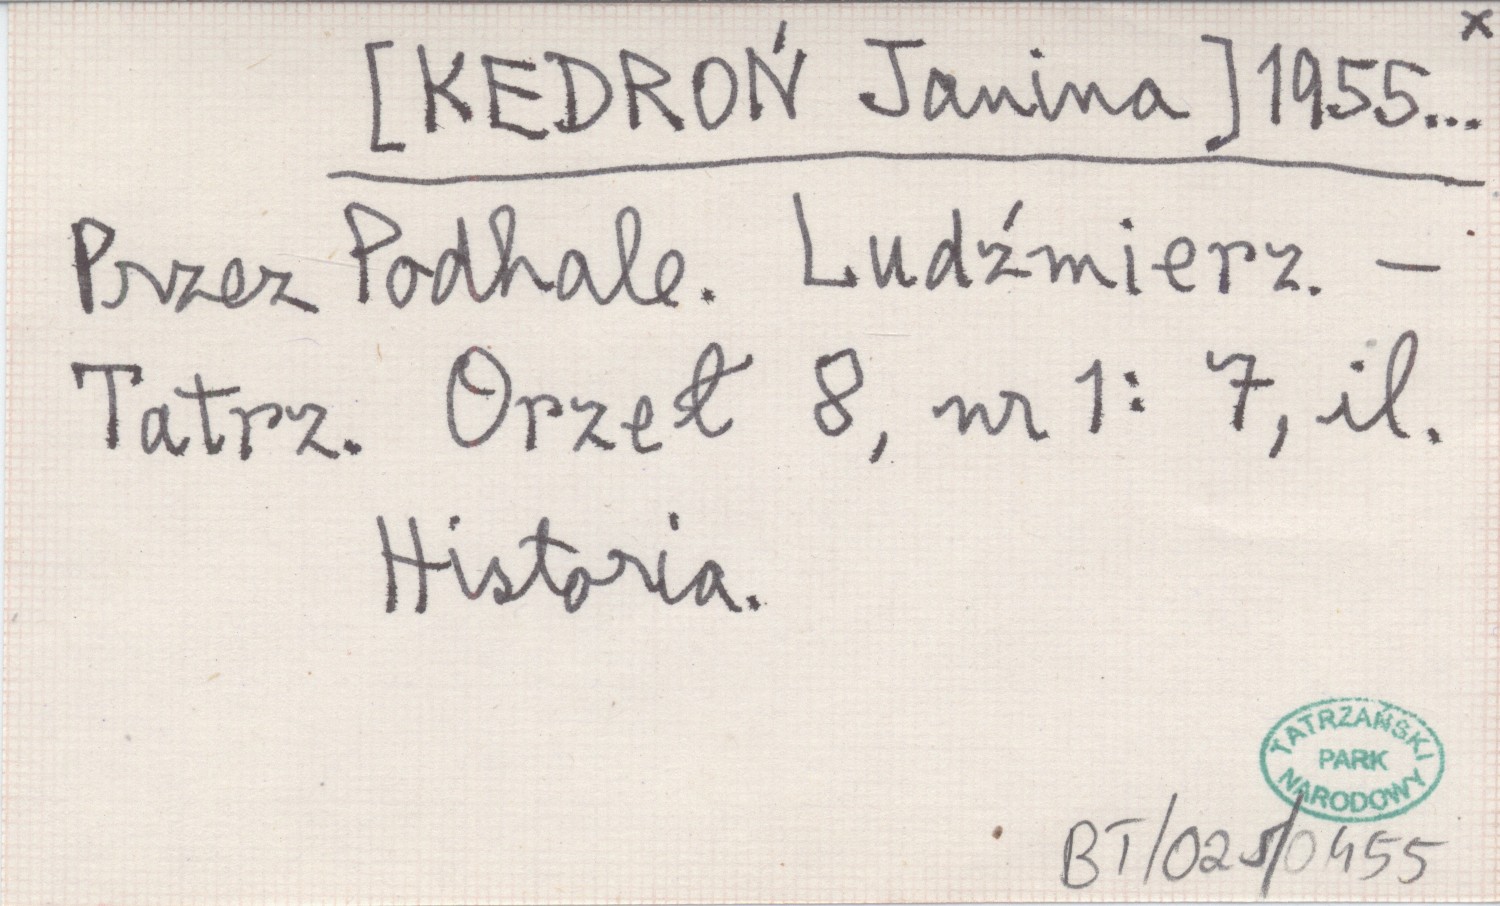 x
[KEDROŃ Janina] 1955...
Przez Podhale. Ludźmierz. —
Tatrz. Orzeł 8, nr 1: 7, il.
Historia.
TATRZAŃSKI
PARK
NARODOWY
BT/025/0455